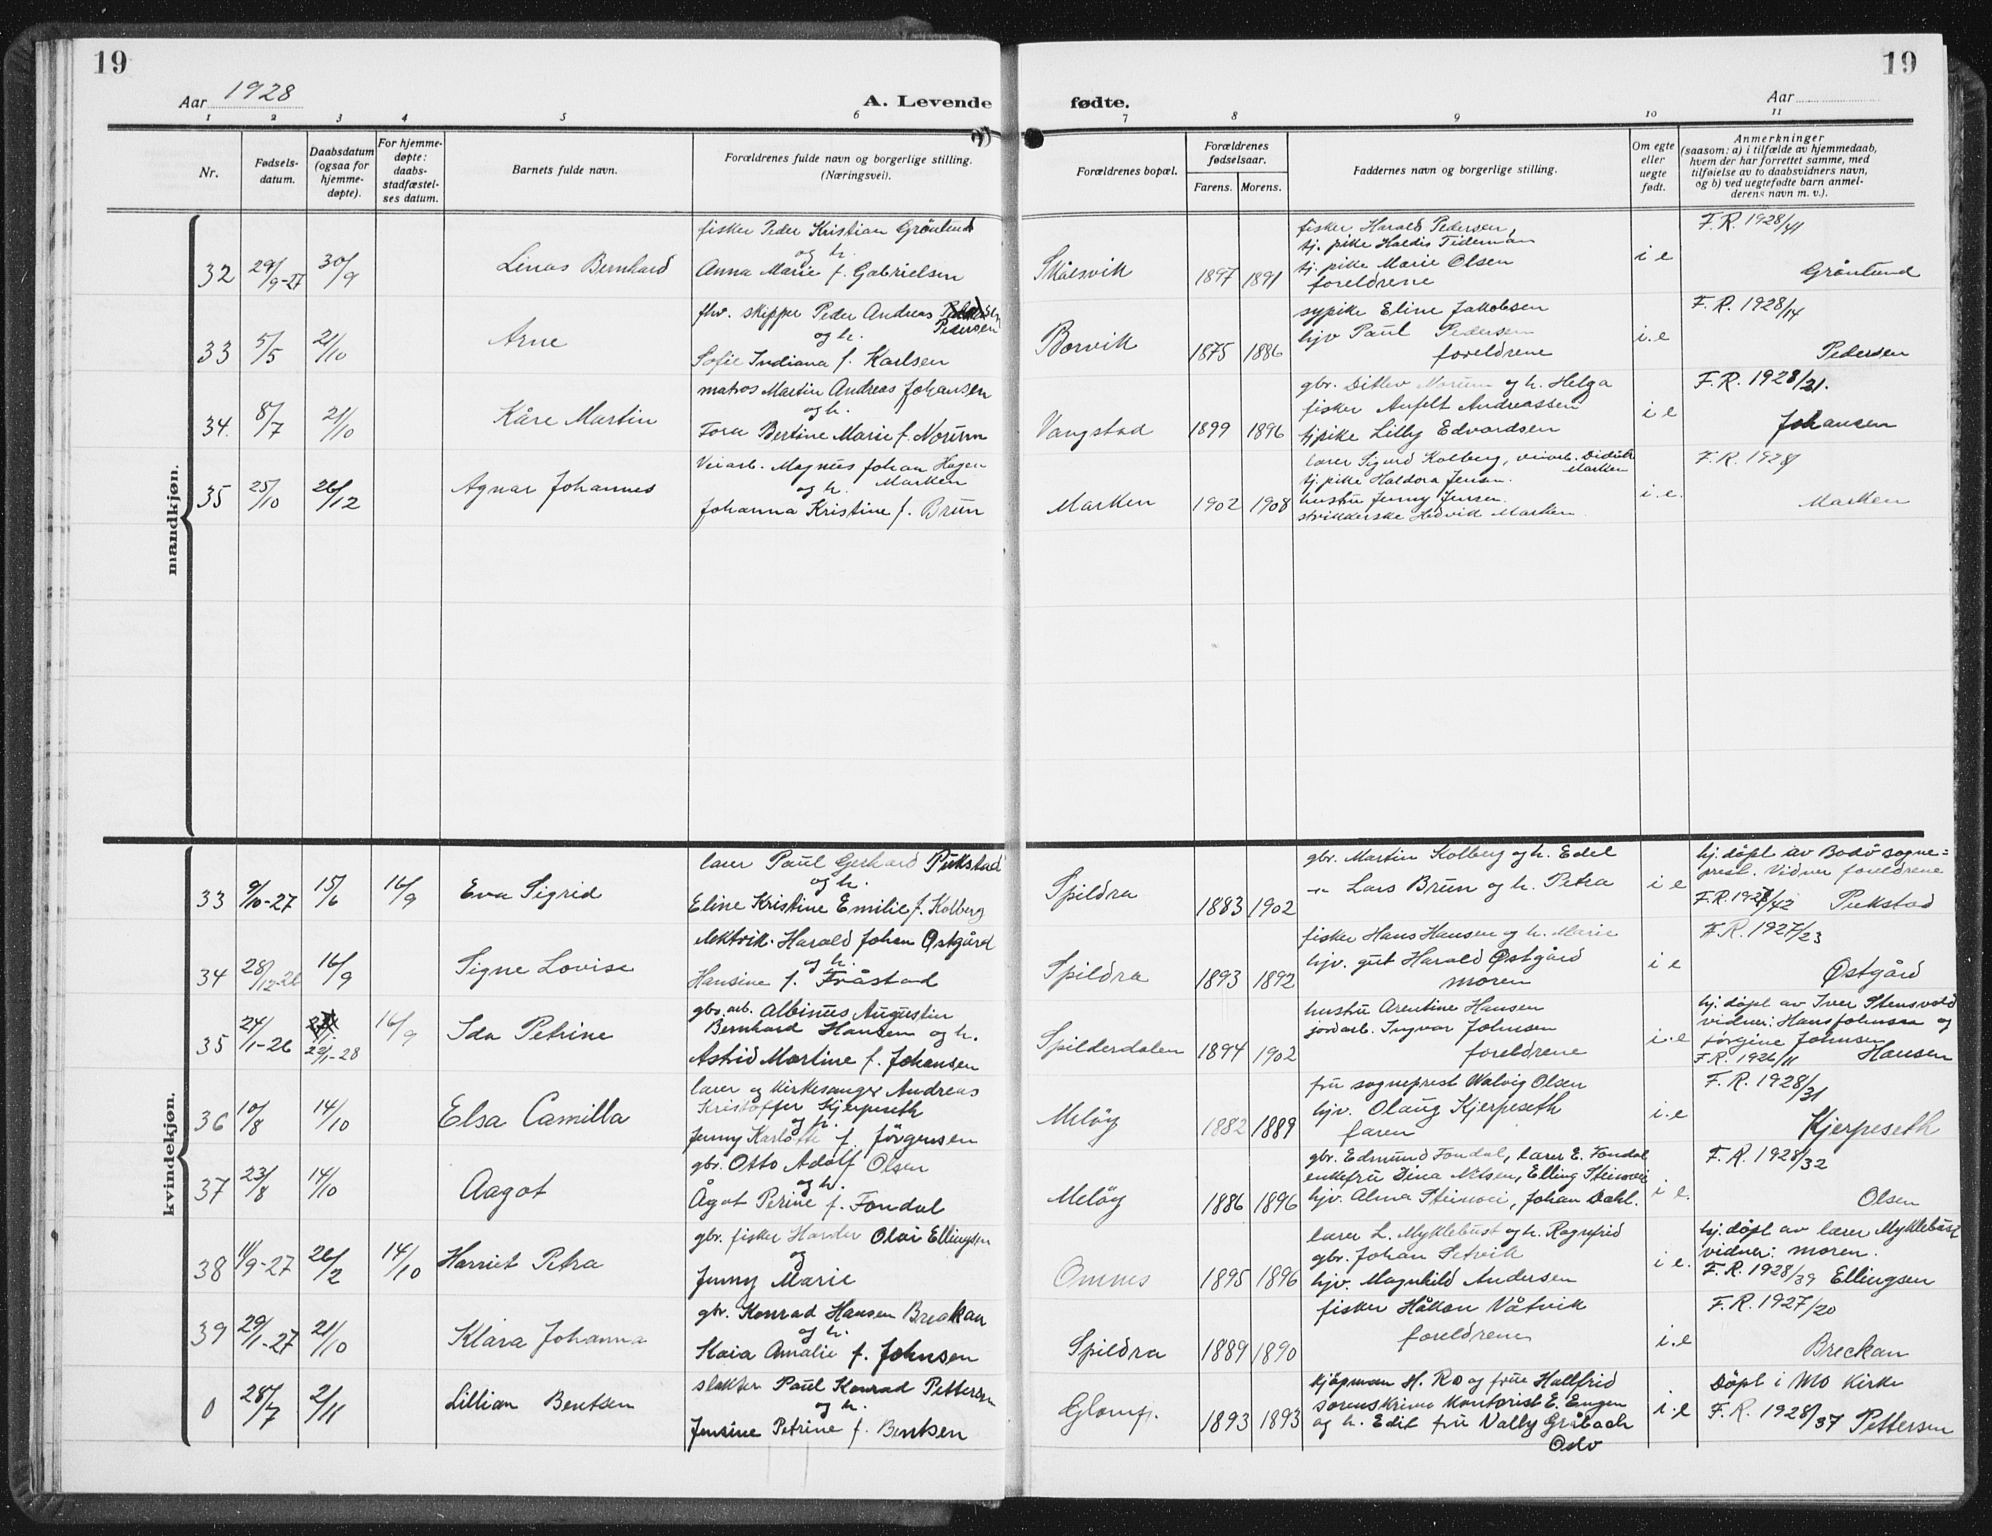 19
19
Aar 1928
A. Levende fødte.
Aar
1 2 3 4 5 6 7 8 9 10 11
Nr.
Fødsels-
datum.
Daabsdatum
(ogsaa for
hjemme-
døpte).
For hjemme-
døpte:
daabs-
stadfæstel-
ses datum.
Barnets fulde navn.
Forældrenes fulde navn og borgerlige stilling.
(Næringsvei.)
Forældrenes bopæl.
Forældrenes
fødselsaar.
Farens. Morens.
Faddernes navn og borgerlige stilling.
Om egte
eller
uegte
født.
Anmerkninger
(saasom: a) i tilfælde av hjemmedaab,
hvem der har forrettet samme, med
tilføielse av to daabsvidners navn,
og b) ved uegtefødte barn anmel-
derens navn m. v.).
mandkjøn.
32 29/9-27 30/9 Linas Bernhard
fisker Peder Kristian Gröntund
og h.
Anna Marie f. Gabrielsen
Skålsvik 1897 1891
fisker Harald Pedersen,
tj. pike Haldis Tideman
tj. pike Marie Olsen
foreldrene
i e
F.R. 1928/41
Gröntund
33 5/5 21/10 Arne
fhv. skipper Peder Andreas
Pedersen
og h.
Sofie Indiana f. Karlsen
Borvik 1875 1886
sypike Eline Jakobsen
hjv Paul Pedersen
foreldrene
i.e
F.R. 1928/14
Pedersen
34. 8/7 21/10 Kåre Martin
matros Martin Andreas Johansen
og h.
Tora Bertine Marie f. Norum
Vangstad 1899 1896
gbr. Ditlev Norum og h. Helga
fisker Anfelt Andreassen
tjpike Lilly Edvardsen
i e
F.R. 1928/21.
Johansen
35 25/10 26/12 Agnar Johannes
Veiarb. Magnus Johan Hagen
Marken
og h.
Johanna Kristine f. Brun
Marken 1902 1908
lærer Sigurd Kolberg, veiarb. Didrik
Marken
tj. pike Haldora Jensen.
hustru Jenny Jensen.
strikkerske Hedvik Marken
i.e.
F.R. 1928
Marken
kvindekjøn.
33 9/10-27 15/6 16/9 Eva Sigrid
lærer Paul Gerhard Pukstad
og h.
Eline Kristine Emilie f. Kolberg
Spildra 1883 1902
gbr. Martin Kolberg og h. Edel
-"- Lars Brun og h. Petra
i e
hj. döpt av Bodö sogne=
prest. Vidner foreldrene
F.R. 1927/42 Pukstad
34 28/12-26 16/9 Signe Lovise
elektrik. Harald Johan Østgård
og h.
Hansine f. Fråstad
Spildra 1893 1892
fisker Hans Hansen og h. Marie
hjv. gut Harald Østgård
moren
i e
F.R. 1927/23
Østgård
35 24/1-26 22/1-28 16/9 Ida Petrine
gbr. arb. Albinus Augustin
Bernhard Hansen og h.
Astrid Martine f. Johansen
Spilderdalen 1894 1902
hustru Arentine Hansen
jordarb. Ingvar Johnsen
foreldrene
i.e
hj. döpt av Iver Stensvold
vidner: Hans Johnsen og
Jörgine Johnsen
F.R. 1926/11 Hansen
36 10/8 14/10 Elsa Camilla
lærer og kirkesanger Andreas
Kristoffer Kjerpeseth
og h.
Jenny Karlotte f. Jörgensen
Melöy 1882 1889
fru sogneprest Walvig Olsen
hjv. Olaug Kjerpeseth
faren
i.e
F.R. 1928/31
Kjerpeseth
37 23/8 14/10 Aagot
gbr. Otto Adolf Olsen
og h.
Ågot Perine f. Fondal
Melöy 1886 1896
gbr. Edmund Fondal, lærer E. Fondal
enkefru Dina Nilsen, Elling Steinvei
hjv. Alma Steinvei, Johan Dahl.
i e.
F.R. 1928/32
Olsen
38 11/9-27 26/2 14/10 Harriet Petra
gbr. fisker Harder Olai Ellingsen
og
Jenny Marie
Omnes 1895 1896
lærer L. Myklebust og h. Ragnfrid
gbr. Johan Setvik
hjv. Magnhild Andersen
i e.
hj. döpt av lærer Myklebust
vidner: moren.
F.R. 1928/39 Ellingsen
39 29/1-27 21/10 Klara Johanna
gbr. Konrad Hansen Breckan
og h.
Kaia Amalie f. Johnsen
Spildra 1889 1890
fisker Håkon Våtvik
foreldrene
i.e
F.R. 1927/20
Breckan
0 28/7 2/11 Lillian Bentsen
slakter Paul Konrad Pettersen
og h.
Jensine Petrine f. Bentsen
Glomfj. 1893 1893
kjöpman H. Ro og frue Hallfrid
sorenskriver kontorist E. Engen
og h. Edit fru Vally Gråbach
Oslo
i.e
Döpt i Mo kirke
F.R. 1928/37 Pettersen